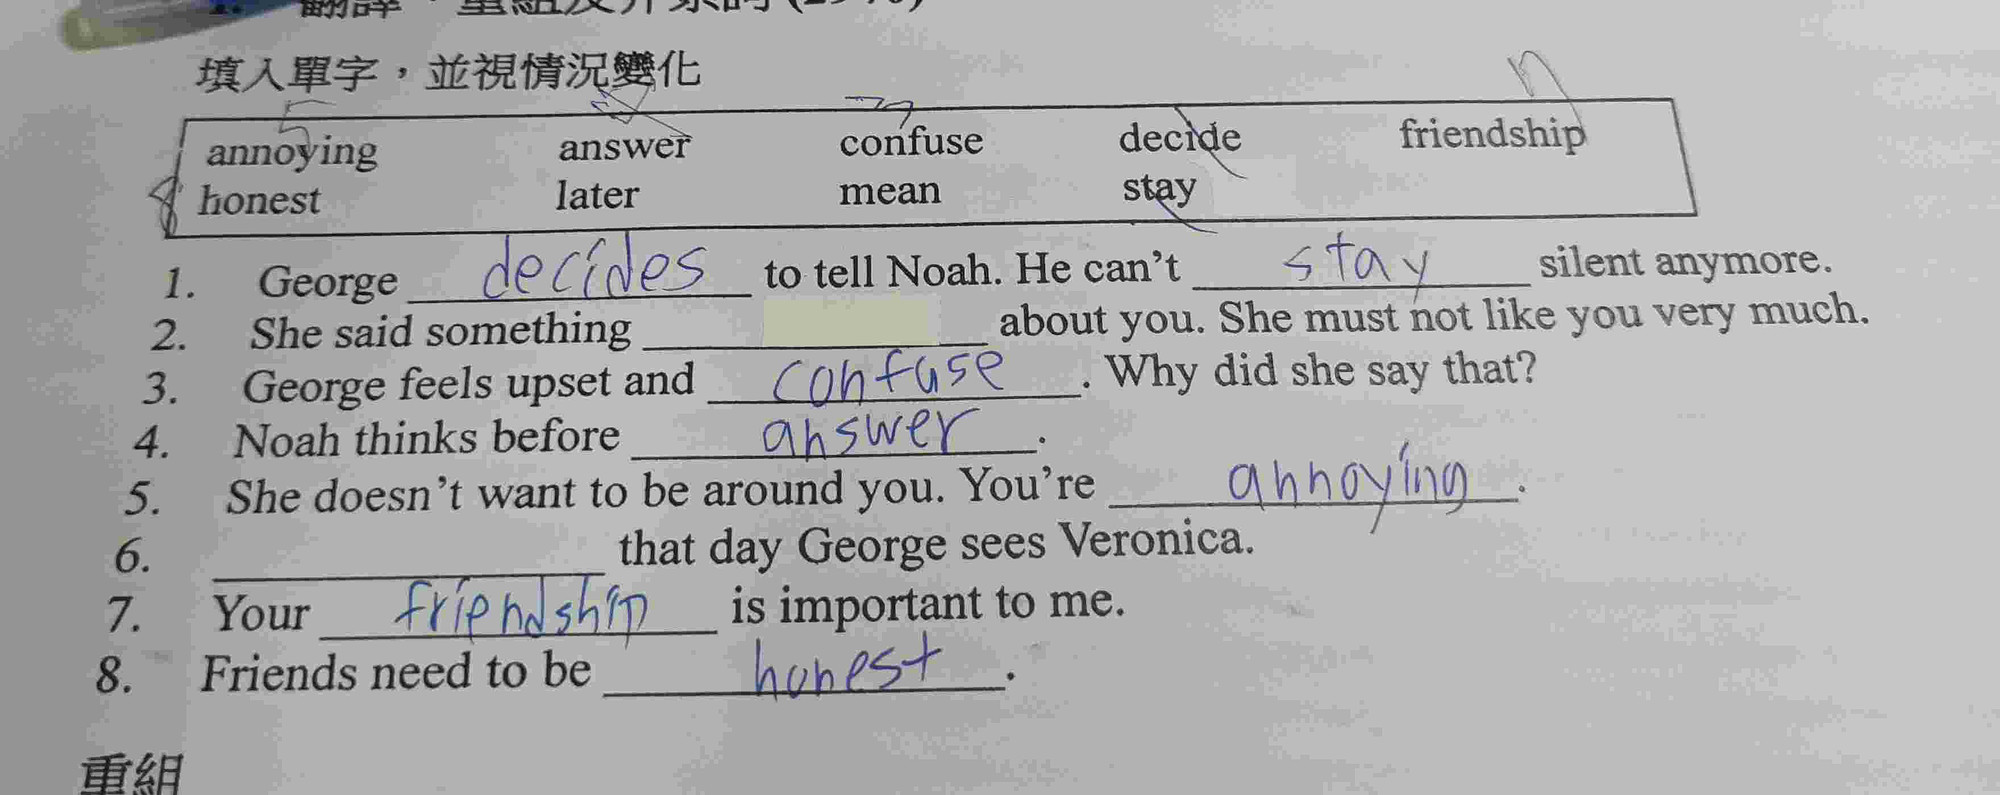 填入單字，並視情況變化
annoying answer confuse decide friendship
honest later mean stay
1. George decides to tell Noah. He can't stay silent anymore.
2. She said something ______ about you. She must not like you very much.
3. George feels upset and confuse. Why did she say that?
4. Noah thinks before answer.
5. She doesn't want to be around you. You're annoying.
6. ______ that day George sees Veronica.
7. Your friendship is important to me.
8. Friends need to be honest.
重組